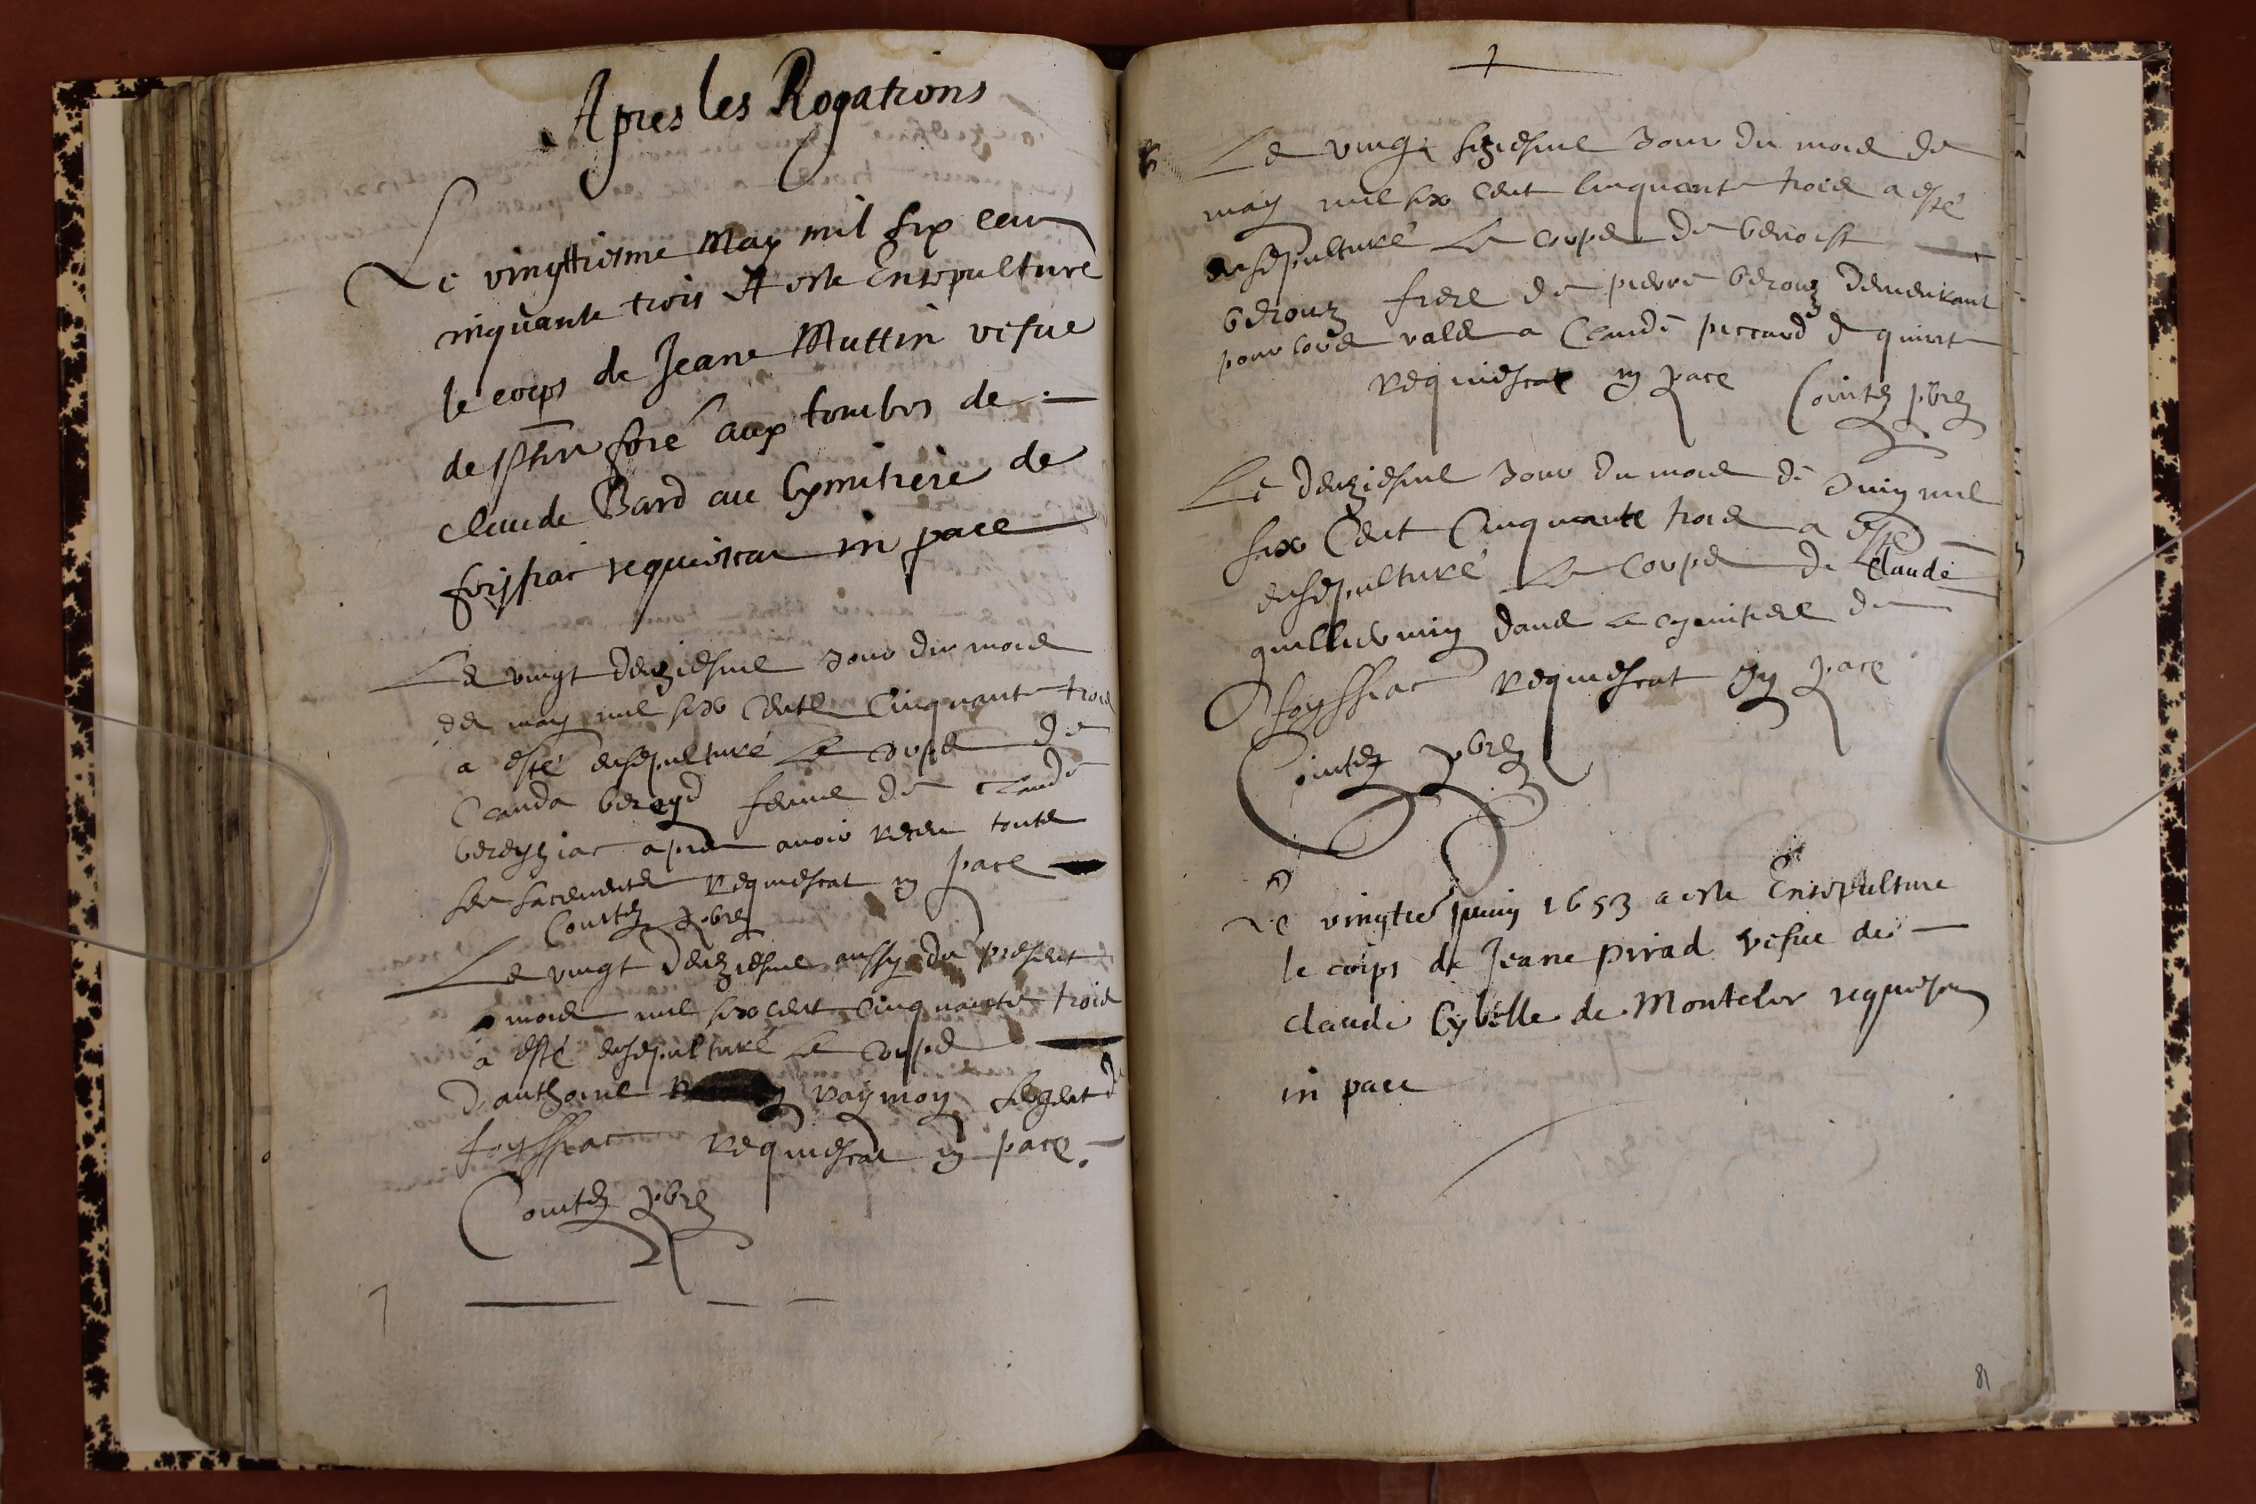 Apres les Rogations
Le vingttiesme May mil six cent
cinquante trois A este Ensepulturé
le corps de Jeane Muttin vefue
de foré aux tombes de
claude Bard au Cymitiere de
foissiac requiescat in pace
Le vingt deuziesme Jour du mois
de may mil six cents Cinquante trois
a esté ensepulturé Le corps de
Clauda beroyd feme de Claude
bereyziac apres auoir receu touts
ses sacrements Requiescat in pace
Contez pbre
Le vingt deuziesme aussy du present
mois mil six cent Cinquante trois
a esté ensepulturé Le corps
D'anthoine Raymon sergent de
foyssiac Requiescat in pace
Contez pbre
Le vingt seziesme Jour du mois de
may mil six cent cinquante trois a esté
ensepulturé Le corps de benoist
berouz frere de pierre berouz demeurant
pour lors valet a Claude piccard de
Requiescat in pace Contez pbre
Le deuziesme Jour du mois de Juin mil
six Cent Cinquante trois a esté
ensepulturé Le Corps de Claude
dans Le cymitiere de
foyssiac Requiescat in pace
Contez pbre
Le vingtie juin 1653 a este Ensepulture
le corps de Jeane pirad vefue de
claude Cybelle de Montcler requiescat
in pace
81